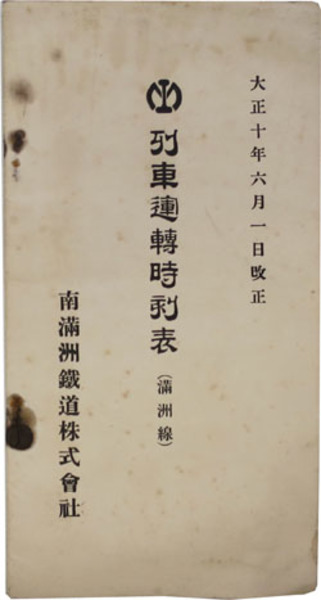 大正十年六月一日改正
列車運轉時刻表
(滿洲線)
南滿洲鐵道株式會社